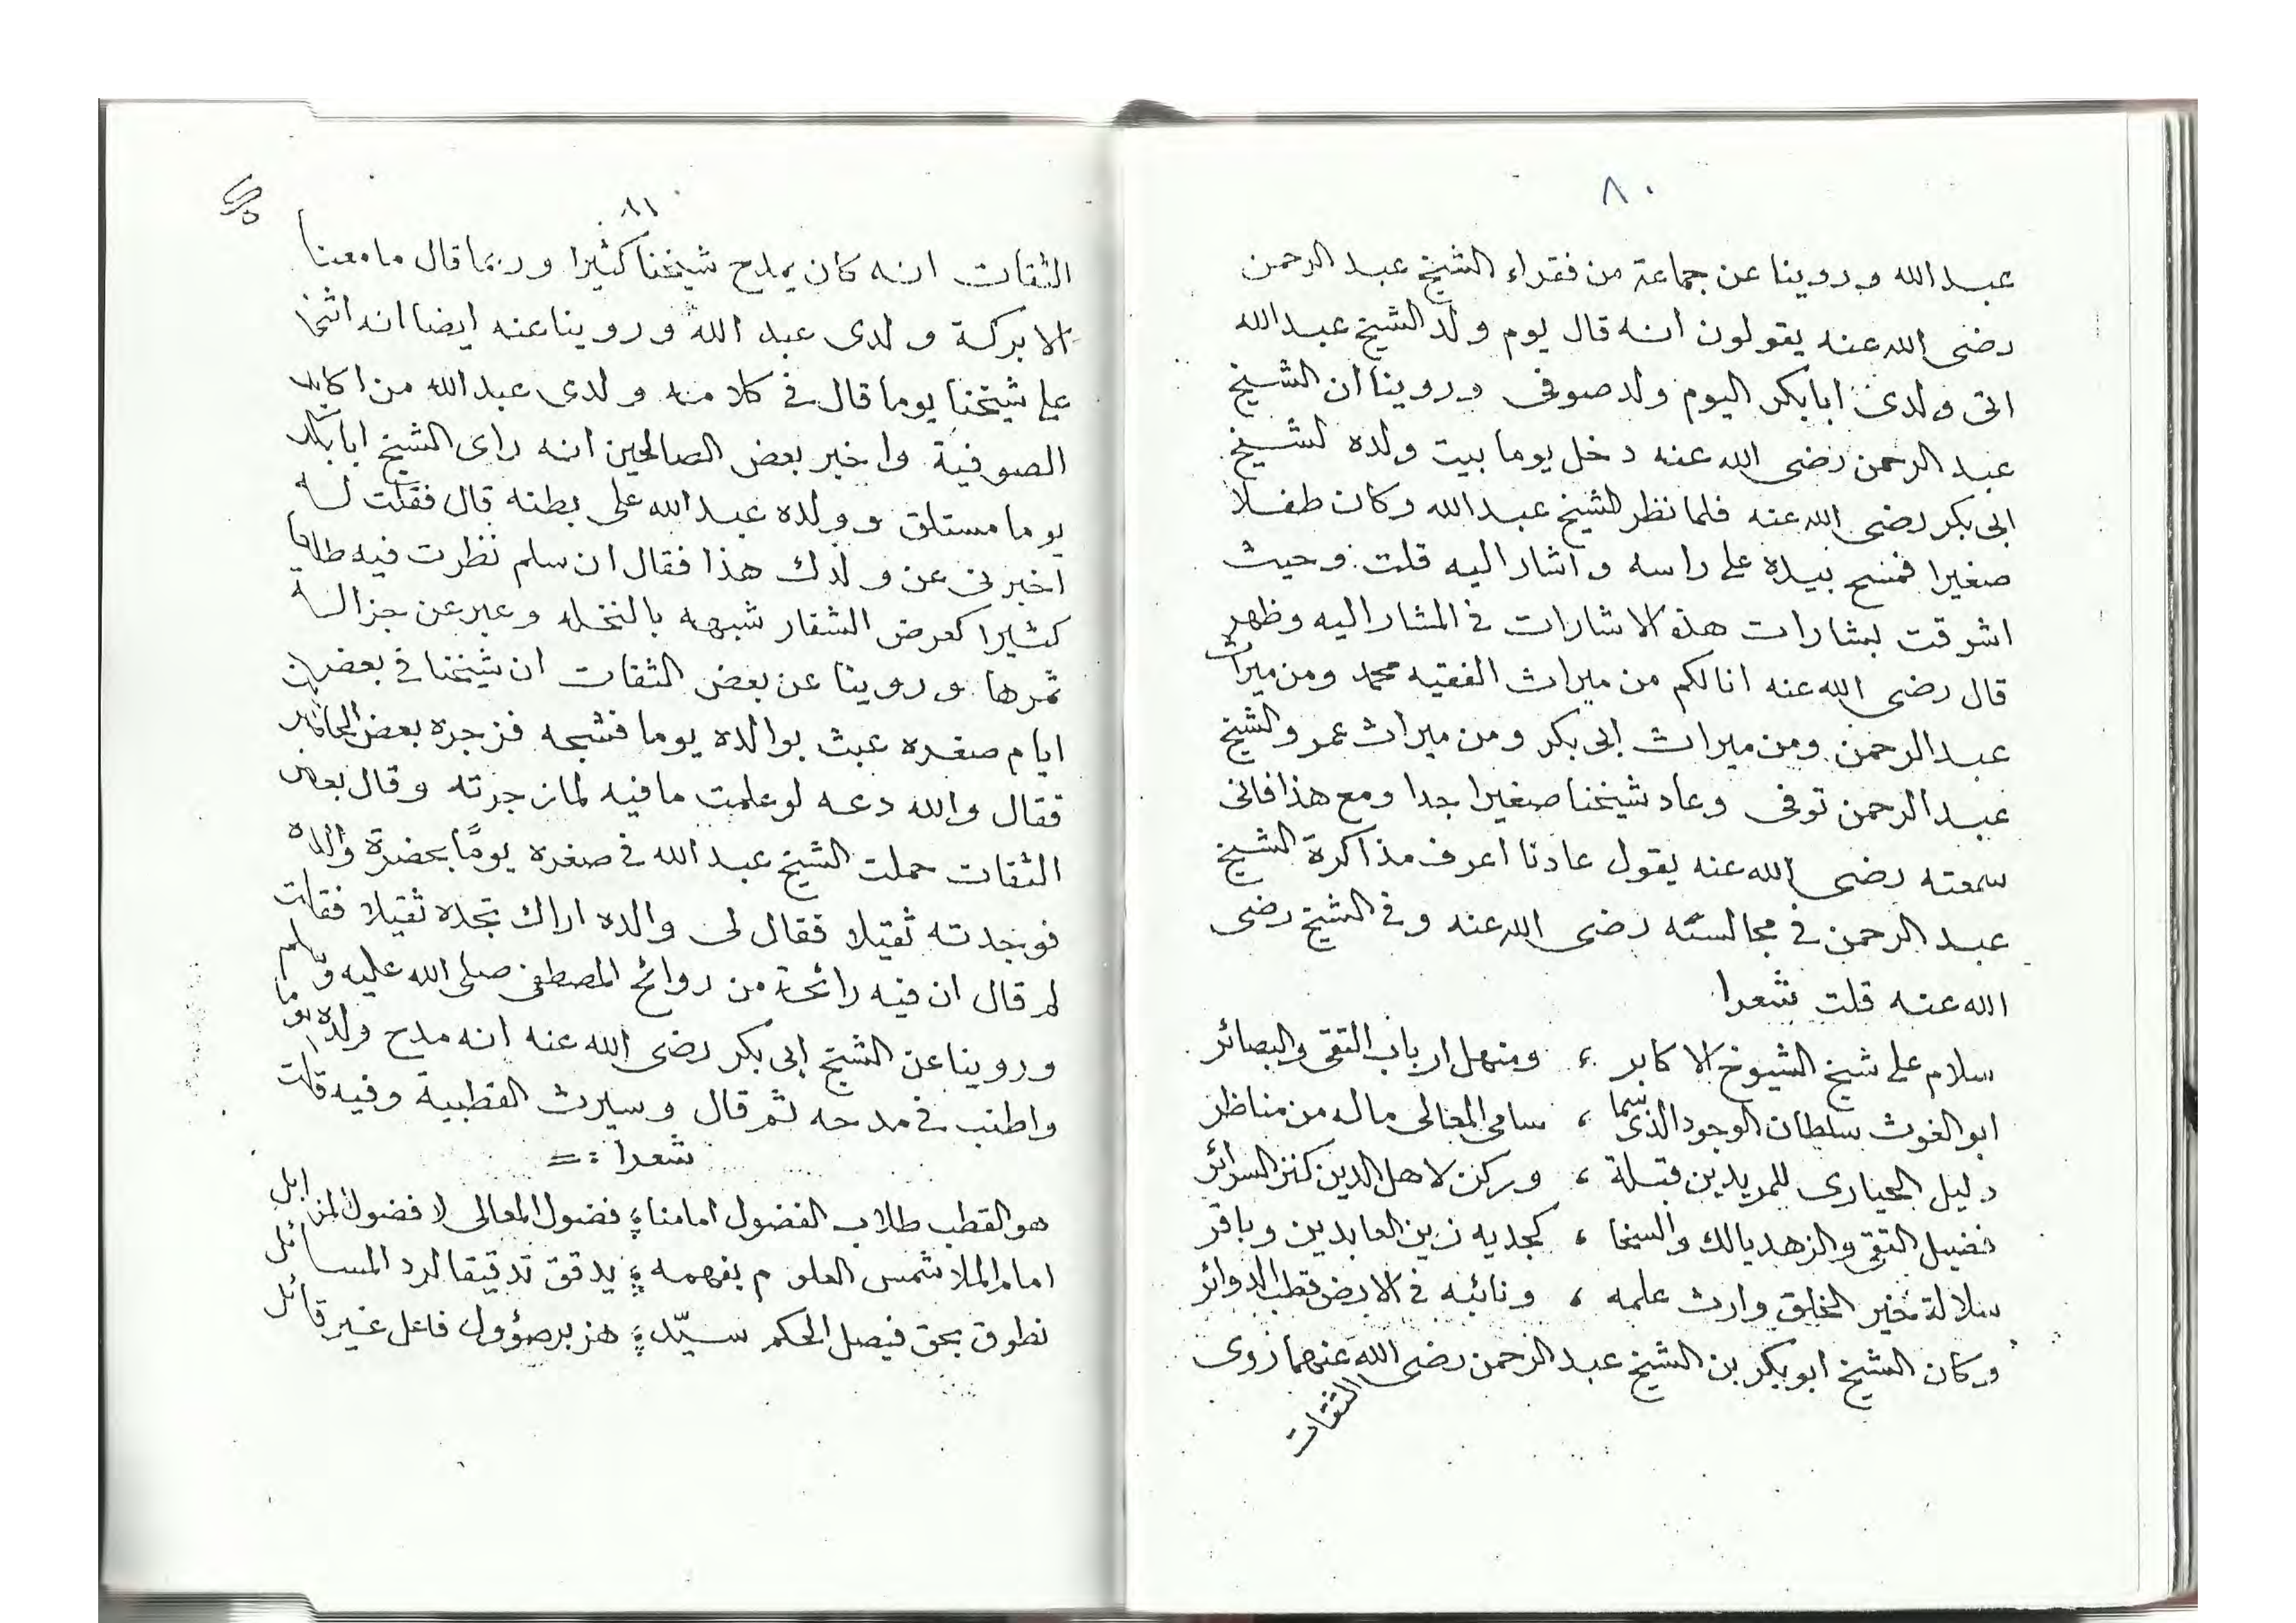 ٨٠
عبد الله وروينا عن جماعة من فقراء الشيخ عبد الرحمن
رضى الله عنه يقولون انه قال يوم ولد الشيخ عبد الله
اتى ولدى ابا بكر اليوم ولد صوفى وروينا ان الشيخ
عبد الرحمن رضى الله عنه دخل يوما بيت ولده الشيخ
ابى بكر رضى الله عنه فلما نظر الشيخ عبد الله وكان طفلا
صغيرا فمسح بيده على راسه واشار اليه قلت وحيث
اشرقت بشارات هذه الاشارات فى المشار اليه وظهر
قال رضى الله عنه انالكم من ميراث الفقيه محمد ومن ميراث
عبد الرحمن ومن ميراث ابى بكر ومن ميراث عمر والشيخ
عبد الرحمن توفى وعاد شيخنا صغيرا جدا ومع هذا فانى
سمعته رضى الله عنه يقول عادنا اعرف مذاكرة الشيخ
عبد الرحمن فى مجالسته رضى الله عنه وفى الشيخ رضى
الله عنه قلت شعرا
سلام على شيخ الشيوخ الاكابر ، ومنهل ارباب التقى والبصائر
ابو الغوث سلطان الوجود الذى سما ، سامى المعالى ماله من مناظر
دليل الحيارى للمريدين قبلة ، وركن لاهل الدين كنز السرائر
فضيل التقى والزهد يالك والسخا ، كجديه زين العابدين وباقر
سلالة خير الخلق وارث علمه ، ونائبه فى الارض قطب الدوائر
وكان الشيخ ابو بكر بن الشيخ عبد الرحمن رضى الله عنهما روى
الثقات
٨١
الثقات انه كان يمدح شيخنا كثيرا وربما قال ما معنا
الا بركة ولدى عبد الله وروينا عنه ايضا انه اثنى
على شيخنا يوما قال فى كلامه ولدى عبد الله من اكابر
الصوفية واخبر بعض الصالحين انه راى الشيخ ابا بكر
يوما مستلق وولده عبد الله على بطنه قال فقلت له
اخبرنى عن ولدك هذا فقال ان سلم نظرت فيه طلعا
كثيرا كعرض الشقار شبهه بالنخله وعبر عن جزالة
ثمرها وروينا عن بعض الثقات ان شيخنا فى بعض
ايام صغره عبث بوالده يوما فشجه فزجره بعض الحاضر
فقال والله دعه لو علمت ما فيه لما زجرته وقال بعض
الثقات حملت الشيخ عبد الله فى صغره يومًا بحضرة والده
فوجدته ثقيلا فقال لى والده اراك تجده ثقيلا فقلت
لم قال ان فيه رائحة من روائح المصطفى صلى الله عليه وسلم
وروينا عن الشيخ ابى بكر رضى الله عنه انه مدح ولده يوما
واطنب فى مدحه ثم قال وسيرث القطبية وفيه قلت
شعرا
هو القطب طلاب الفضول امامنا ؛ فضول المعالى لا فضول المزايل
امام الملا شمس العلوم بفهمه ؛ يدقق تدقيقا لرد المسائل
نطوق بحق فيصل الحكم سيّد ؛ هزبر صؤول فاعل غير قائل